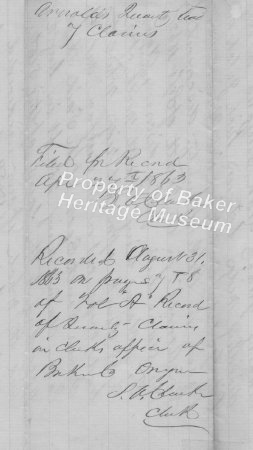 Arnold's Quartz Lead
of Claims
Filed for Record
Apr 1863
Property of Baker
Heritage Museum
Clerk
Recorded August 31,
1863 on pages 7 & 8
of Vol "A" Record
of Quartz Claims
in clerks office of
Baker Co Oregon
Clark
Clerk